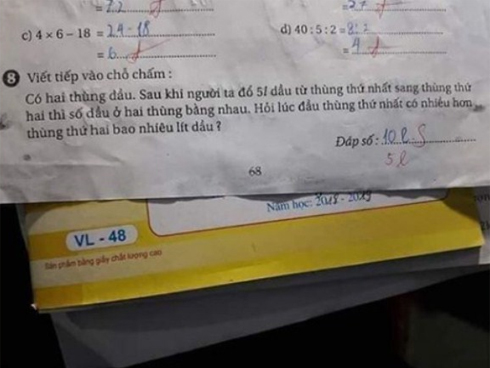 = 72
= 27
c) 4 × 6 – 18 = 24 - 18
d) 40 : 5 : 2 = 8 : 2
= 6
= 4
8 Viết tiếp vào chỗ chấm :
Có hai thùng dầu. Sau khi người ta đổ 5l dầu từ thùng thứ nhất sang thùng thứ
hai thì số dầu ở hai thùng bằng nhau. Hỏi lúc đầu thùng thứ nhất có nhiều hơn
thùng thứ hai bao nhiêu lít dầu ?
Đáp số : 10 l. S
5 l
68
Năm học: 2018 - 2019
VL - 48
Sản phẩm bằng giấy chất lượng cao